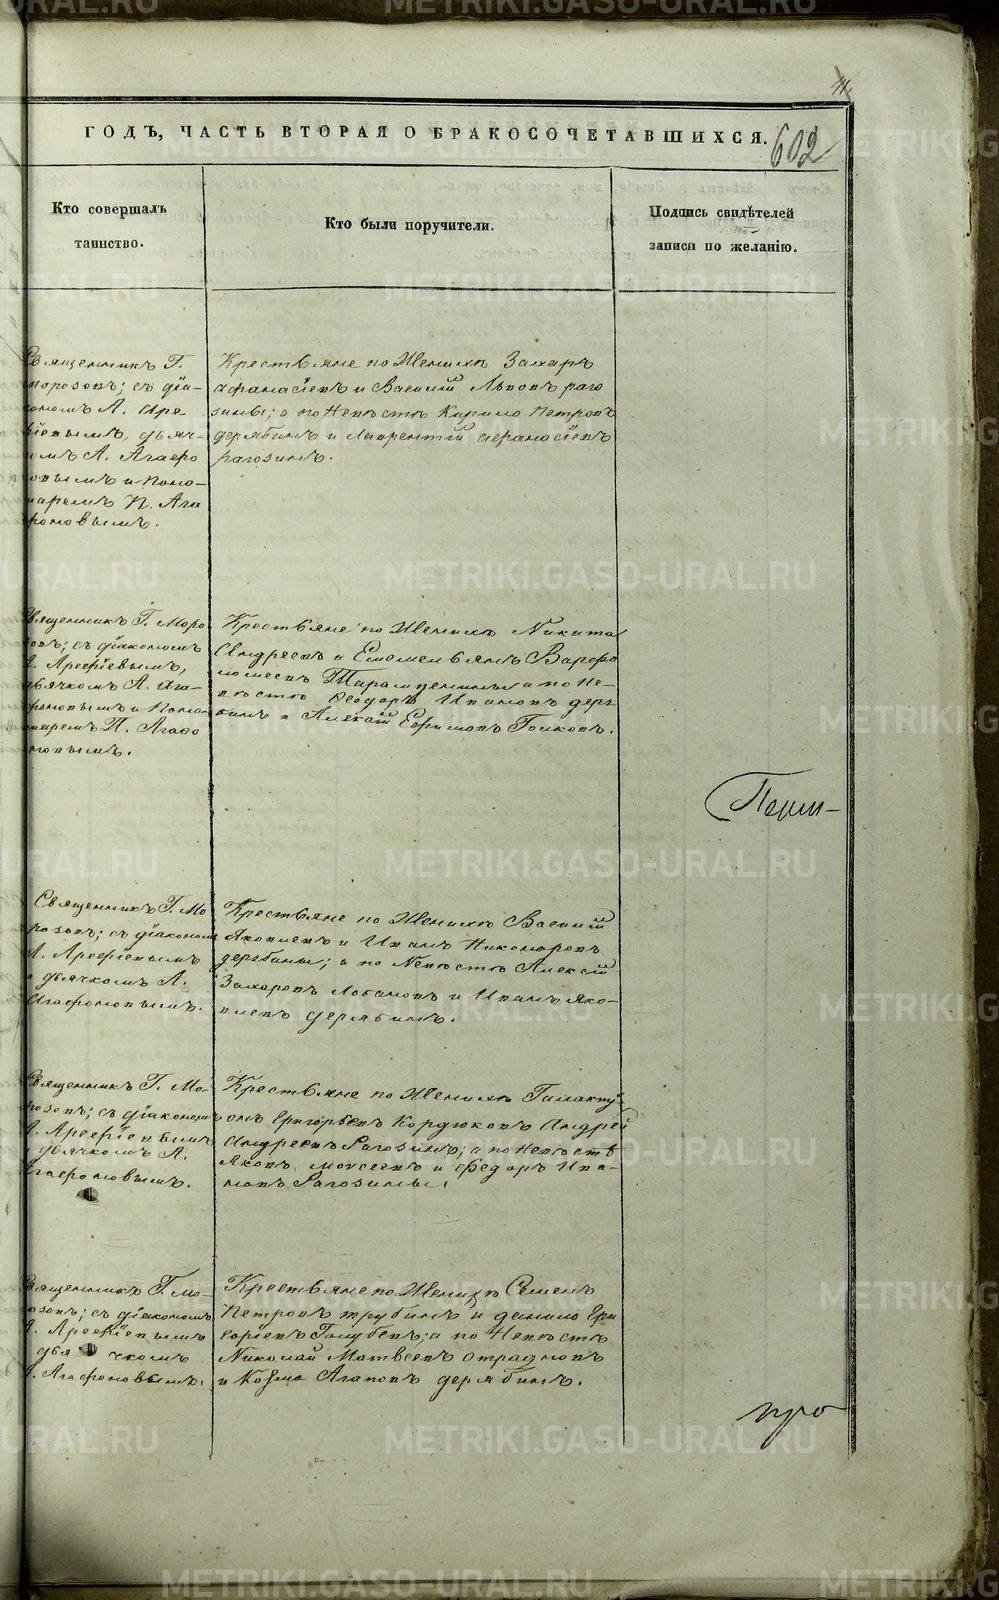 ГОДЪ, ЧАСТЬ ВТОРАЯ О БРАКОСОЧЕТАВШИХСЯ.
602
Кто совершалъ
таинство.
Кто были поручители.
Подпись свидѣтелей
записи по желанію.
Священникъ Г.
Морозовъ; съ діа-
кономъ А. Аре
фіевымъ, дьяч-
комъ А. Агафо
новымъ и поно-
маремъ П. Ага
фоновымъ.
Крестьяне по Женихѣ Захаръ
Афанасіевъ и Василій Львовъ раго
зины; а по Невѣстѣ Кирило Петровъ
дерябинъ и Лаврентій Афанасіевъ
рагозинъ.
Священникъ Г. Моро
зовъ; съ діакономъ
А. Арефіевымъ,
дьячкомъ А. Ага-
фоновымъ и Поно-
маремъ П. Агафо
новымъ.
Крестьяне по Женихѣ Никита
Андреевъ и Емельянъ Варфо
ломеевъ а по Не-
вѣстѣ Феодоръ Ивановъ деря
бинъ и Алексій Ефимовъ
Священникъ Г. Мо
розовъ; съ діакономъ
А. Арефіевымъ
и дьячкомъ А.
Агафоновымъ.
Крестьяне по Женихѣ Василій
Яковлевъ и Иванъ Никоноровъ
дерябины; а по Невѣстѣ Алексій
Захаровъ Лобановъ и Иванъ Яко-
влевъ дерябинъ.
Священникъ Г. Мо-
розовъ; съ діакономъ
А. Арефіевымъ
дьячкомъ А.
Агафоновымъ.
Крестьяне по Женихѣ Галакті
онъ Григорьевъ Кордюковъ Андрей
Андреевъ Рагозинъ; а по Невѣстѣ
Яковъ Моисеевъ и Федоръ Ива-
новъ Рагозины.
Священникъ Г. Мо-
розовъ; съ діакономъ
А. Арефіевымъ
дья чкомъ
А. Агафоновымъ.
Крестьяне по Женихѣ Семенъ
Петровъ трубинъ и данило Гри
горіевъ Голубевъ; а по Невѣстѣ
Николай Матвеевъ отрадновъ
и Козма Агаповъ дерябинъ.
METRIKI.GASO-URAL.RU